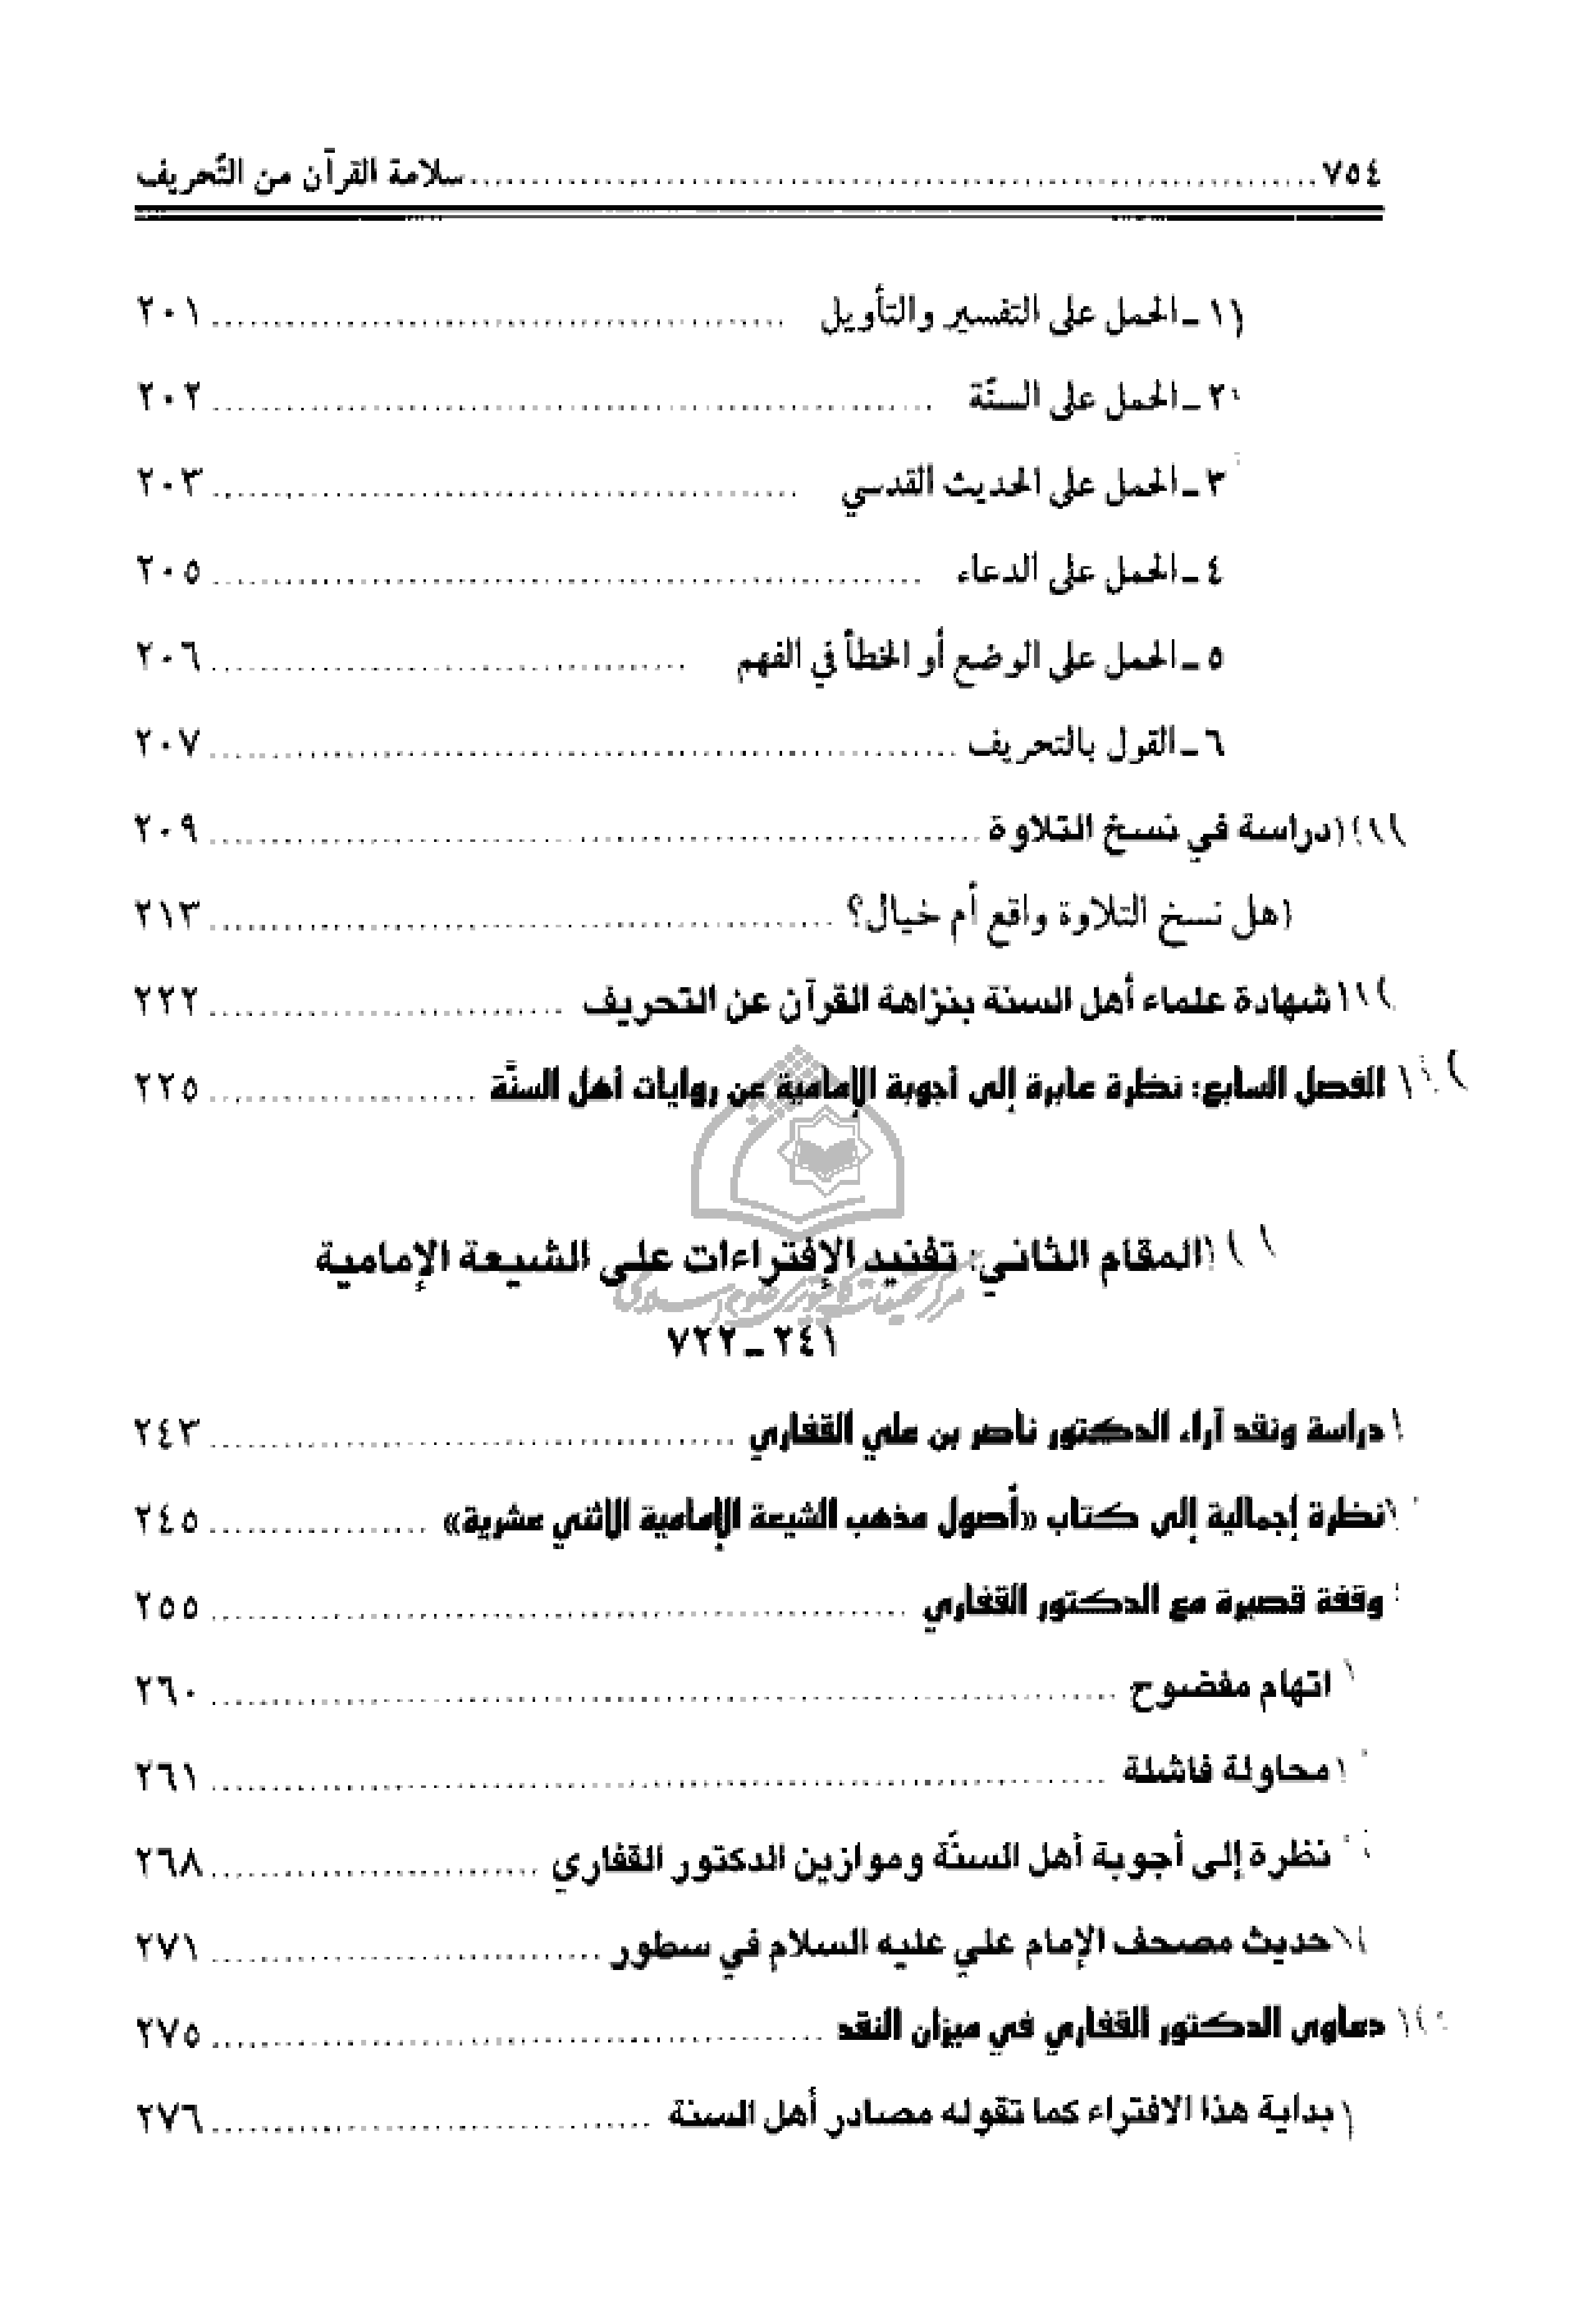 ٧٥٤ ........ سلامة القرآن من التّحريف
١ ـ الحمل على التفسير والتأويل ........ ٢٠١
٢ ـ الحمل على السنّة ........ ٢٠٢
٣ ـ الحمل على الحديث القدسي ........ ٢٠٣
٤ ـ الحمل على الدعاء ........ ٢٠٥
٥ ـ الحمل على الوضع أو الخطأ في الفهم ........ ٢٠٦
٦ ـ القول بالتحريف ........ ٢٠٧
دراسة في نسخ التلاوة ........ ٢٠٩
هل نسخ التلاوة واقع أم خيال؟ ........ ٢١٣
شهادة علماء أهل السنة بنزاهة القرآن عن التحريف ........ ٢٢٢
الفصل السابع: نظرة عابرة إلى أجوبة الإمامية عن روايات أهل السنّة ........ ٢٢٥
المقام الثاني: تفنيد الإفتراءات على الشيعة الإمامية
٢٤١ ـ ٧٢٢
دراسة ونقد آراء الدكتور ناصر بن علي القفاري ........ ٢٤٣
نظرة إجمالية إلى كتاب «أصول مذهب الشيعة الإمامية الاثني عشرية» ........ ٢٤٥
وقفة قصيرة مع الدكتور القفاري ........ ٢٥٥
اتهام مفضوح ........ ٢٦٠
محاولة فاشلة ........ ٢٦١
نظرة إلى أجوبة أهل السنّة وموازين الدكتور القفاري ........ ٢٦٨
حديث مصحف الإمام علي عليه السلام في سطور ........ ٢٧١
دعاوى الدكتور القفاري في ميزان النقد ........ ٢٧٥
بداية هذا الافتراء كما تقوله مصادر أهل السنة ........ ٢٧٦